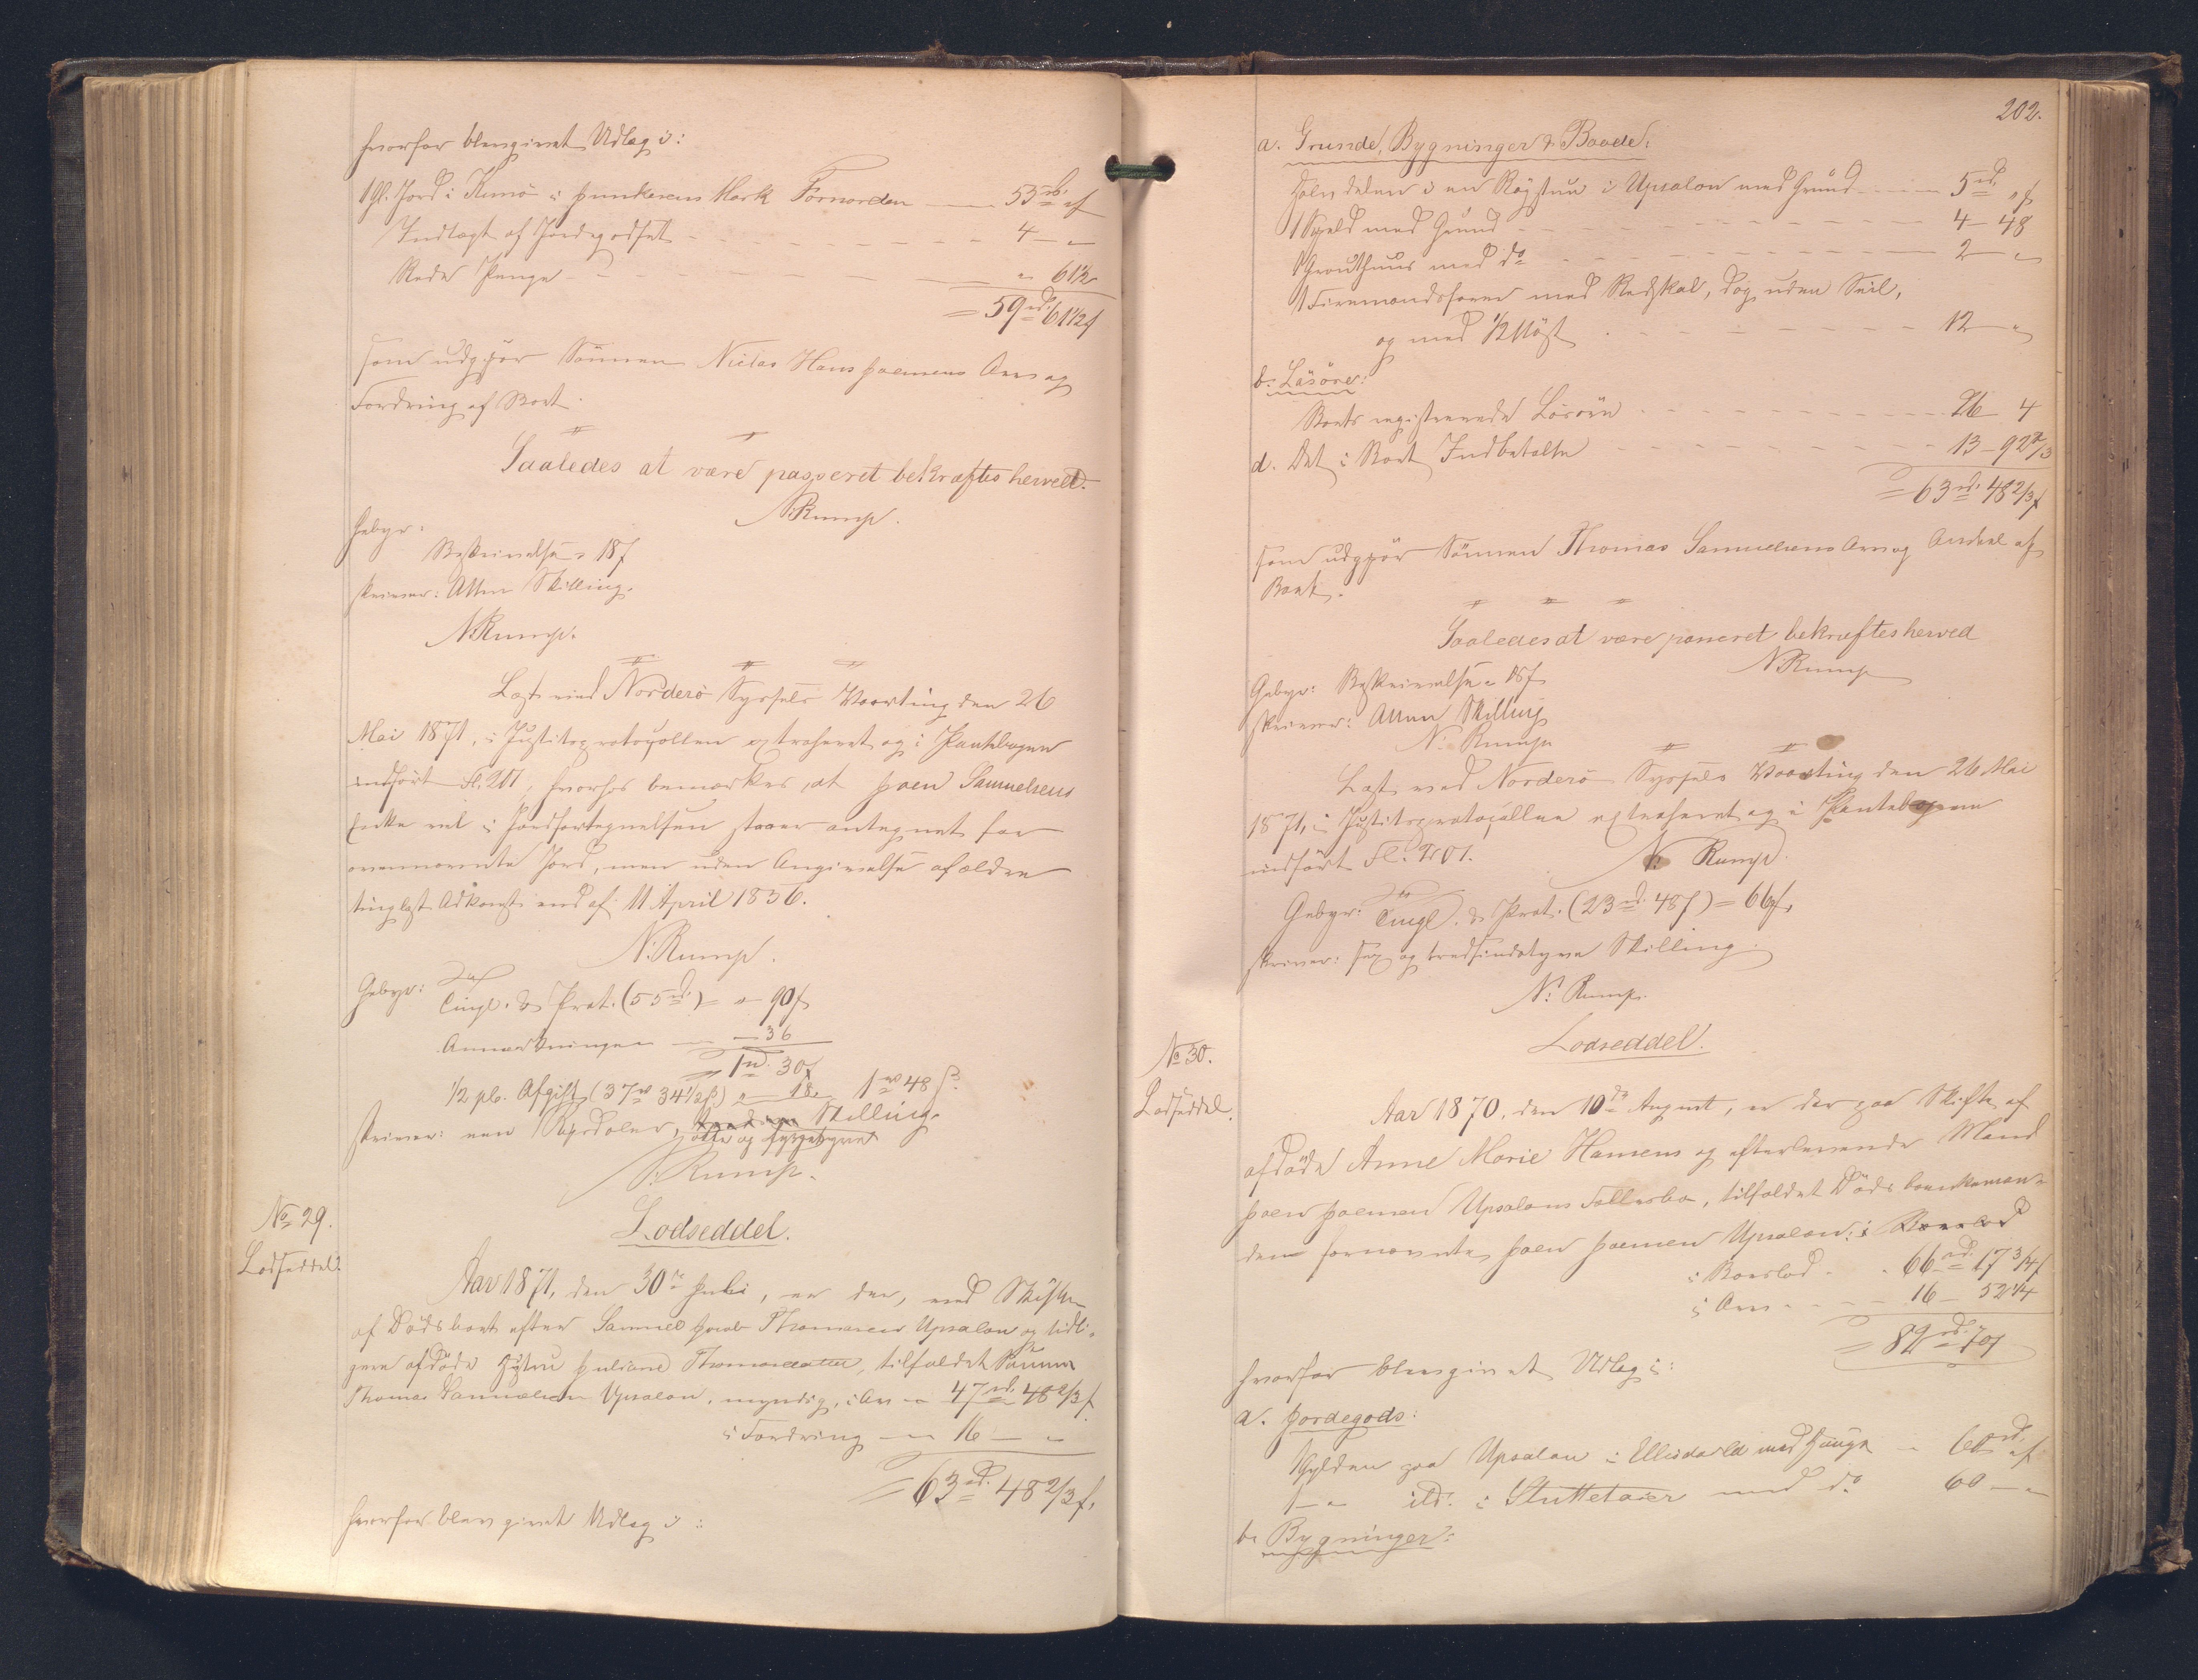 hvorfor blev givet Udlæg i:
1 Gl. Jord i Kunö i Junkerens Mark Fornorden — 55 rd. " ß
Indlagt af Jordegodset - - - 4 — "
Rede Penge - - - " 61½
= 59 rd. 61½ ß
som udgjør Sönnen Niclas Hans Joensens Arv og
Fordring af Boet.
Saaledes at være passeret bekræftes herved.
N. Rump.
Gebyr:
Beskrivelse " 18 ß
skriver: Atten Skilling.
N. Rump.
Læst ved Norderö Syssels Vaarting den 26
Mai 1871, i Justitsprotocollen extraheret og i Pantebogen
indført Fl. 201, hvorhos bemærkes, at Joen Samuelsens
Enke vel i Jordfortegnelsen staaer antegnet for
ovennævnte Jord, men uden Angivelse af ældre
tinglæst Adkomst end af 11 April 1836.
N. Rump.
Gebyr:
Tingl. & Prot. (55 rd.) = " 90 ß
Anmærkningen — " — 36
= 1 rd. 30 ß
½ pc. Afgift (37 rd 34½ ß) " — 18 " 1 rd 48 ß.
skriver: een Rigsdaler, Skilling.
otte og fyrgetyve
N. Rump.
No 29.
Lodseddel.
Lodseddel.
Aar 1871, den 30te Juli, er der, ved Skiftet
af Dödsboet efter Samuel Jacob Thomasen Upsalon og tidli-
gere afdöde Hustru Juliane Thomasdatter, tilfaldet Sönnen
Thomas Samuelsen Upsalon, myndig, i Arv — 47 rd. 48 2/3 ß
i Fordring — " 16 — "
= 63 rd. 48 2/3 ß.
hvorfor blev givet Udlæg i:
202.
a. Grunde, Bygninger & Baade:
Halvdelen i en Rögstue i Upsalon med Grund - - - 5 rd. " ß
1 Hjeld med Grund - - - 4 — 48
1 Grouthuus med do - - - 2 — "
1 Firemandsfarer med Redskab, dog uden Seil,
og med ½ Nöst - - - 12 — "
b. Lösöre:
Boets registrerede Lösöre - - - 26 — 4
d. Det i Boet Indbetalte - - - 13 — 92 2/3
= 63 rd. 48 2/3 ß
som udgjør Sönnen Thomas Samuelsens Arv og Andeel af
Boet.
Saaledes at være passeret bekræftes herved
N. Rump
Gebyr: Beskrivelse " 18 ß
skriver: Atten Skilling
N. Rump
Læst ved Norderö Syssels Vaarting den 26 Mai
1871, i Justitsprotocollen extraheret og i Pantebogen
indført Fl. 201.
N. Rump.
Gebyr: Tingl. & Prot. (23 rd. 48 ß) = 66 ß.
skriver: sex og tredsindstyve Skilling
N. Rump.
No 30.
Lodseddel.
Lodseddel.
Aar 1870, den 10de August, er der paa Skifte af
afdöde Anne Marie Hansens og efterlevende Mand
Joen Joensen Upsalons Fællesbo, tilfaldet Döds
den fornævnte Joen Joensen Upsalon: i Boeslod
i Boeslod - - 66 rd. 17 3/4 ß
i Arv - - - 16 — 52 1/4
= 82 rd. 70 ß
hvorfor blev givet Udlæg i:
a. Jordegods:
1 Gylden paa Upsalon i med Hauge — 60 rd. " ß
1 — " ibd. i med do 60 — "
b. Bygninger: